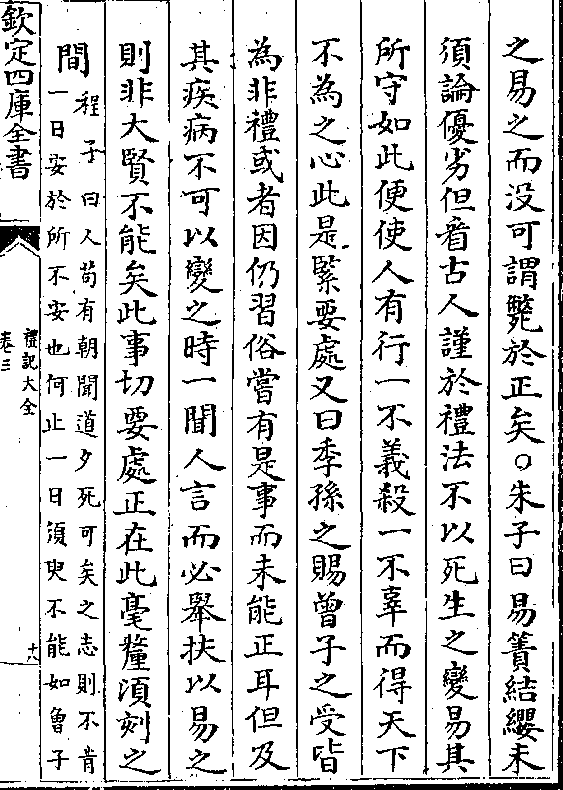 之易之而没可謂斃於正矣○朱子曰易簀結纓未
須論優劣但看古人謹於禮法不以死生之變易其
所守如此便使人有行一不義殺一不辜而得天下
不為之心此是緊要處又曰季孫之賜曾子之受皆
為非禮或者因仍習俗嘗有是事而未能正耳但及
其疾病不可以變之時一聞人言而必舉扶以易之
則非大賢不能矣此事切要處正在此毫釐須刻之
間
程子曰人苟有朝聞道夕死可矣之志則不肯
一日安於所不安也何止一日須臾不能如曾子
欽定四庫全書
禮記大全
卷三
十八